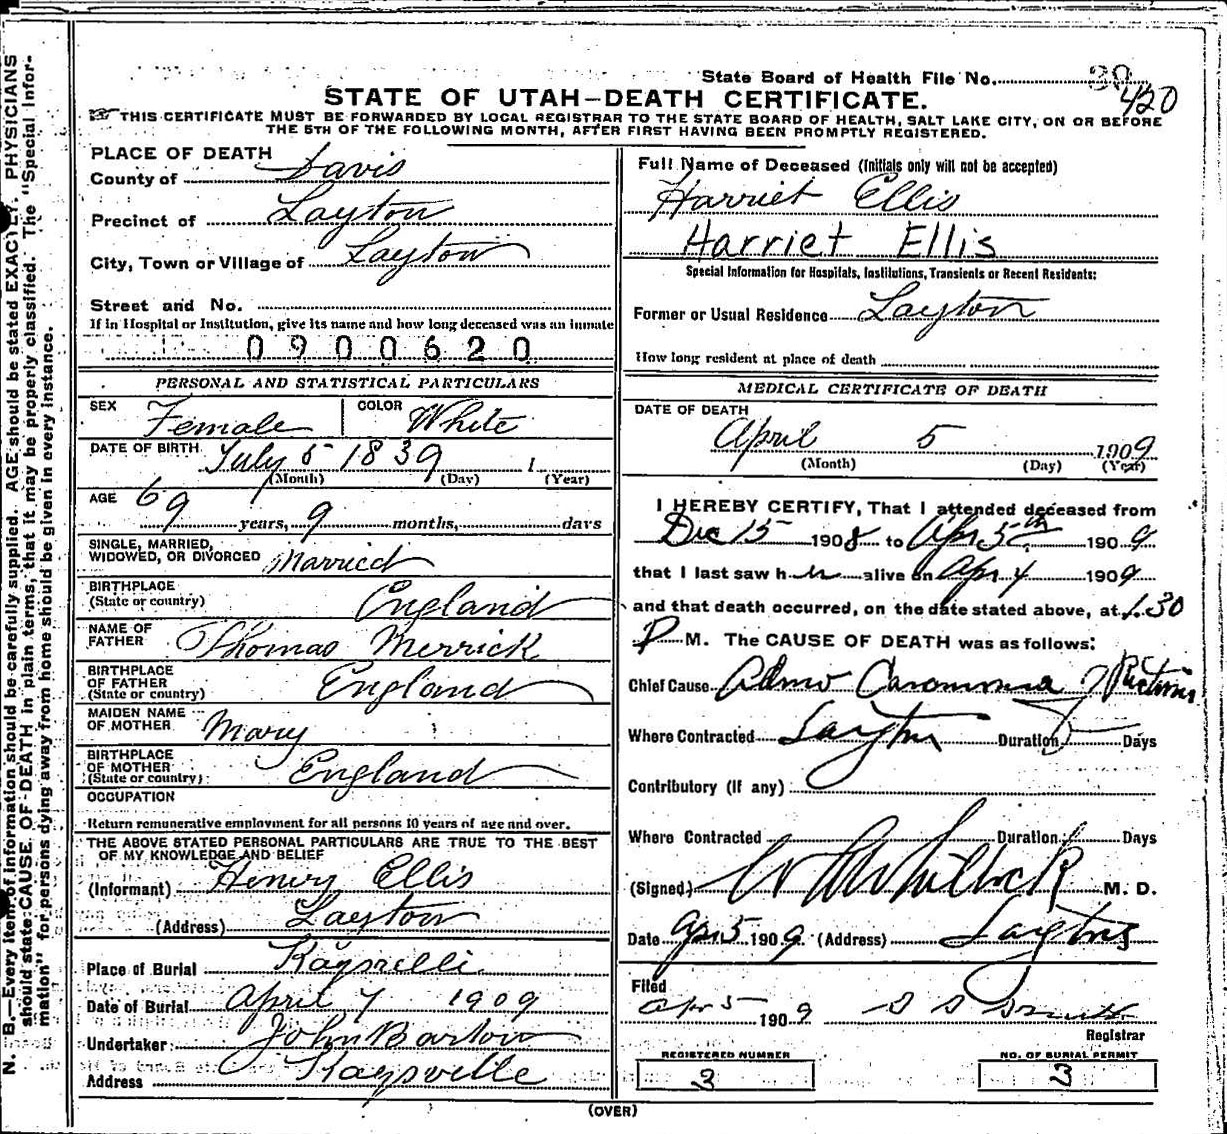 State Board of Health File No. 30
420
STATE OF UTAH—DEATH CERTIFICATE.
THIS CERTIFICATE MUST BE FORWARDED BY LOCAL REGISTRAR TO THE STATE BOARD OF HEALTH, SALT LAKE CITY, ON OR BEFORE
THE 5TH OF THE FOLLOWING MONTH, AFTER FIRST HAVING BEEN PROMPTLY REGISTERED.
PLACE OF DEATH
County of Davis
Precinct of Layton
City, Town or Village of Layton
Street and No.
If in Hospital or Institution, give its name and how long deceased was an inmate
0900620
PERSONAL AND STATISTICAL PARTICULARS
SEX Female COLOR White
DATE OF BIRTH July 5 1839 1
(Month) (Day) (Year)
AGE 69 years, 9 months, days
SINGLE, MARRIED,
WIDOWED, OR DIVORCED Married
BIRTHPLACE
(State or country) England
NAME OF
FATHER Thomas Merrick
BIRTHPLACE
OF FATHER
(State or country) England
MAIDEN NAME
OF MOTHER Mary
BIRTHPLACE
OF MOTHER
(State or country) England
OCCUPATION
Return remunerative employment for all persons 10 years of age and over.
THE ABOVE STATED PERSONAL PARTICULARS ARE TRUE TO THE BEST
OF MY KNOWLEDGE AND BELIEF
(Informant) Henry Ellis
(Address) Layton
Place of Burial Kaysville
Date of Burial April 7 1909
Undertaker: John Barton
Address Kaysville
Full Name of Deceased (Initials only will not be accepted)
Harriet Ellis
Harriet Ellis
Special Information for Hospitals, Institutions, Transients or Recent Residents:
Former or Usual Residence Layton
How long resident at place of death
MEDICAL CERTIFICATE OF DEATH
DATE OF DEATH
April 5 1909
(Month) (Day) (Year)
I HEREBY CERTIFY, That I attended deceased from
Dec 15 1908 to Apr 5th 1909
that I last saw her alive on Apr 4 1909
and that death occurred, on the date stated above, at 1.30
P M. The CAUSE OF DEATH was as follows:
Chief Cause Adeno Carcinoma Rectum
Where Contracted Layton Duration Days
Contributory (If any)
Where Contracted Duration Days
(Signed) M. D.
Date Apr 5 1909. (Address) Layton
Filed
Apr 5 1909
Registrar
REGISTERED NUMBER
3
NO. OF BURIAL PERMIT
3
(OVER)
N. B.—Every item of information should be carefully supplied. AGE should be stated EXACTLY. PHYSICIANS
should state CAUSE OF DEATH in plain terms, that it may be properly classified. The "Special Infor-
mation" for persons dying away from home should be given in every instance.